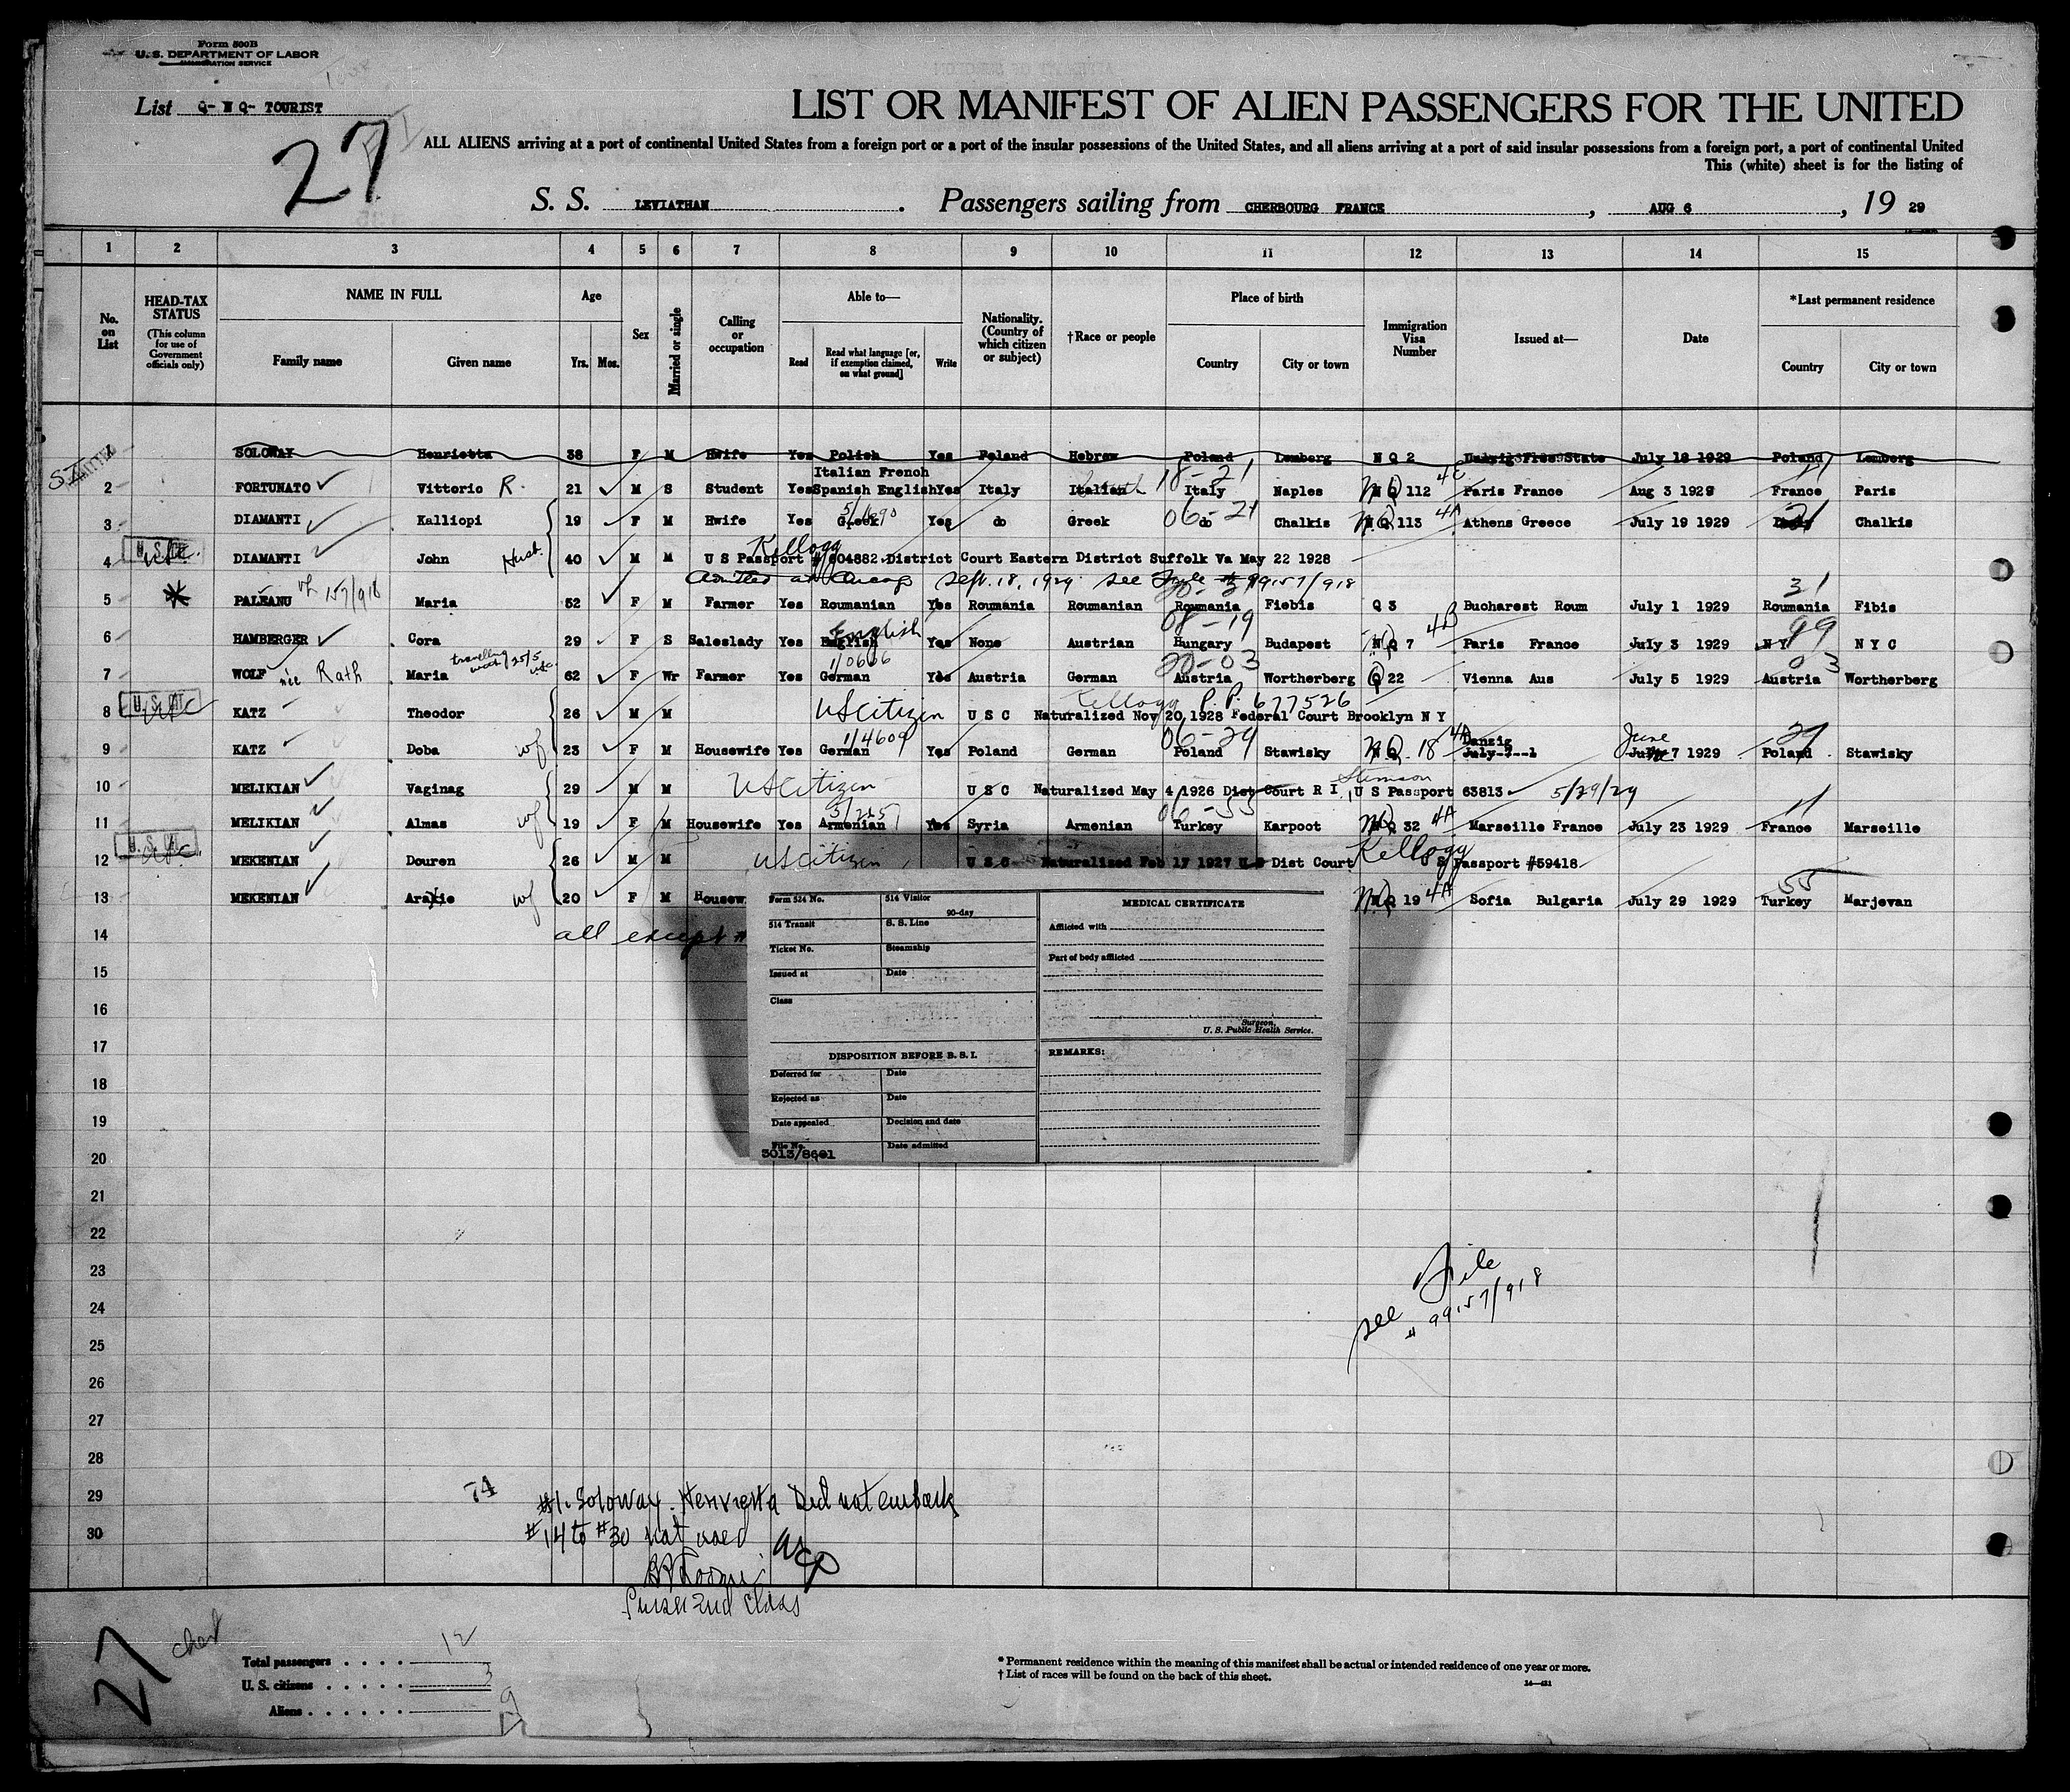 Form 500B
U. S. DEPARTMENT OF LABOR
IMMIGRATION SERVICE
List Q- N Q- TOURIST
27
LIST OR MANIFEST OF ALIEN PASSENGERS FOR THE UNITED
ALL ALIENS arriving at a port of continental United States from a foreign port or a port of the insular possessions of the United States, and all aliens arriving at a port of said insular possessions from a foreign port, a port of continental United
This (white) sheet is for the listing of
S. S. LEVIATHAN . Passengers sailing from CHERBOURG FRANCE , AUG 6 , 19 29
1 2 3 4 5 6 7 8 9 10 11 12 13 14 15
No. on List
HEAD-TAX STATUS (This column for use of Government officials only)
NAME IN FULL
Family name Given name
Age
Yrs. Mos.
Sex
Married or single
Calling or occupation
Able to—
Read Read what language [or, if exemption claimed, on what ground] Write
Nationality. (Country of which citizen or subject)
†Race or people
Place of birth
Country City or town
Immigration Visa Number
Issued at—
Date
*Last permanent residence
Country City or town
1 SOLOWAY Henrietta 38 F M Hwife Yes Polish Yes Poland Hebrew Poland Lemberg N Q 2 July 18 1929 Poland Lemberg
Italian French 18-21 4C 11
2 FORTUNATO Vittorio R. 21 M S Student Yes Spanish English Yes Italy Italian Italy Naples N Q 112 Paris France Aug 3 1929 France Paris
06-21 4A 21
3 DIAMANTI Kalliopi 19 F M Hwife Yes Greek Yes do Greek do Chalkis N Q 113 Athens Greece July 19 1929 Chalkis
Kellogg
4 DIAMANTI John Husb. 40 M M U S Passport # 604882 District Court Eastern District Suffolk Va May 22 1928
Admitted at Chicago Sept. 18, 1929. see File # 99157/918
31
5 PALEANU 157/918 Maria 52 F M Farmer Yes Roumanian Yes Roumania Roumanian Roumania Fiebis Q 3 Bucharest Roum July 1 1929 Roumania Fibis
English 08-19 4B 99
6 HAMBERGER Cora 29 F S Saleslady Yes English Yes None Austrian Hungary Budapest N Q 7 Paris France July 3 1929 N Y N Y C
1/0606 20-03 03
7 WOLF née Rath Maria travelling 62 F Wr Farmer Yes German Yes Austria German Austria Wortherberg Q 22 Vienna Aus July 5 1929 Austria Wortherberg
Kellogg P. P. 677526
8 KATZ Theodor 26 M M US citizen U S C Naturalized Nov 20, 1928 Federal Court Brooklyn N Y
1/4609 06-29 4A Danzig June 29
9 KATZ Doba wf 23 F M Housewife Yes German Yes Poland German Poland Stawisky N Q. 18 July 7 1929 Poland Stawisky
Stimson
10 MELIKIAN Vaginag 29 M M US citizen U S C Naturalized May 4 1926 Dist Court R I U S Passport 63813 5/29/29
06-55 4A 11
11 MELIKIAN Almas wf 19 F M Housewife Yes Armenian Yes Syria Armenian Turkey Karpoot N Q 32 Marseille France July 23 1929 France Marseille
12 MEKENIAN Douren 26 M M US citizen U S C Naturalized Feb 17 1927 U S Dist Court Kellogg S Passport #59418
4A 55
13 MEKENIAN Araxie wf 20 F M Housew N Q 19 Sofia Bulgaria July 29 1929 Turkey Marjevan
14 all except #
15
16
17
18
19
20
21
22
23
24
25
26
27
28
29
30
Form 524 No. 514 Visitor
90-day
514 Transit S. S. Line
Ticket No. Steamship
Issued at Date
Class
DISPOSITION BEFORE B. S. I.
Deferred for Date
Rejected as Date
Date appealed Decision and date
File No. Date admitted
5013/8601
MEDICAL CERTIFICATE
Afflicted with
Part of body afflicted
Surgeon,
U. S. Public Health Service.
REMARKS:
see File
# 99157/918
74
#1. Soloway. Henrietta Did not embark
#14 to #30 not used
Purser 2nd Class
27
Total passengers . . . . 12
U. S. citizens . . . . . 3
Aliens . . . . . . 9
* Permanent residence within the meaning of this manifest shall be actual or intended residence of one year or more.
† List of races will be found on the back of this sheet.